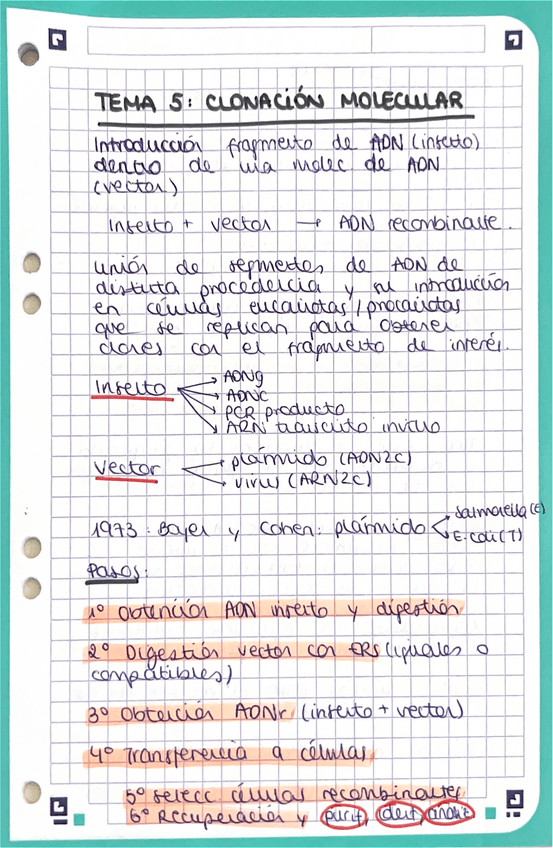 TEMA 5: CLONACIÓN MOLECULAR
Introducción fragmento de ADN (inserto)
dentro de una molec de ADN
(vector)
Inserto + vector → ADN recombinante.
unión de segmentos de ADN de
distinta procedencia y su introducción
en células eucariotas/procariotas
que se replican para obtener
clones con el fragmento de interés.
Inserto
ADNg
ADNc
PCR producto
ARN transcrito invitro
Vector
plásmido (ADN2C)
virus (ARN2C)
1973: Boyer y Cohen: plásmido
Salmonella (E)
E.coli (T)
Pasos:
1º Obtención ADN inserto y digestión
2º Digestión vector con ERs (iguales o
compatibles)
3º Obtención ADNr (inserto + vector)
4º Transferencia a células
5º selecc. células recombinantes
6º Recuperación y purif, ident, análit